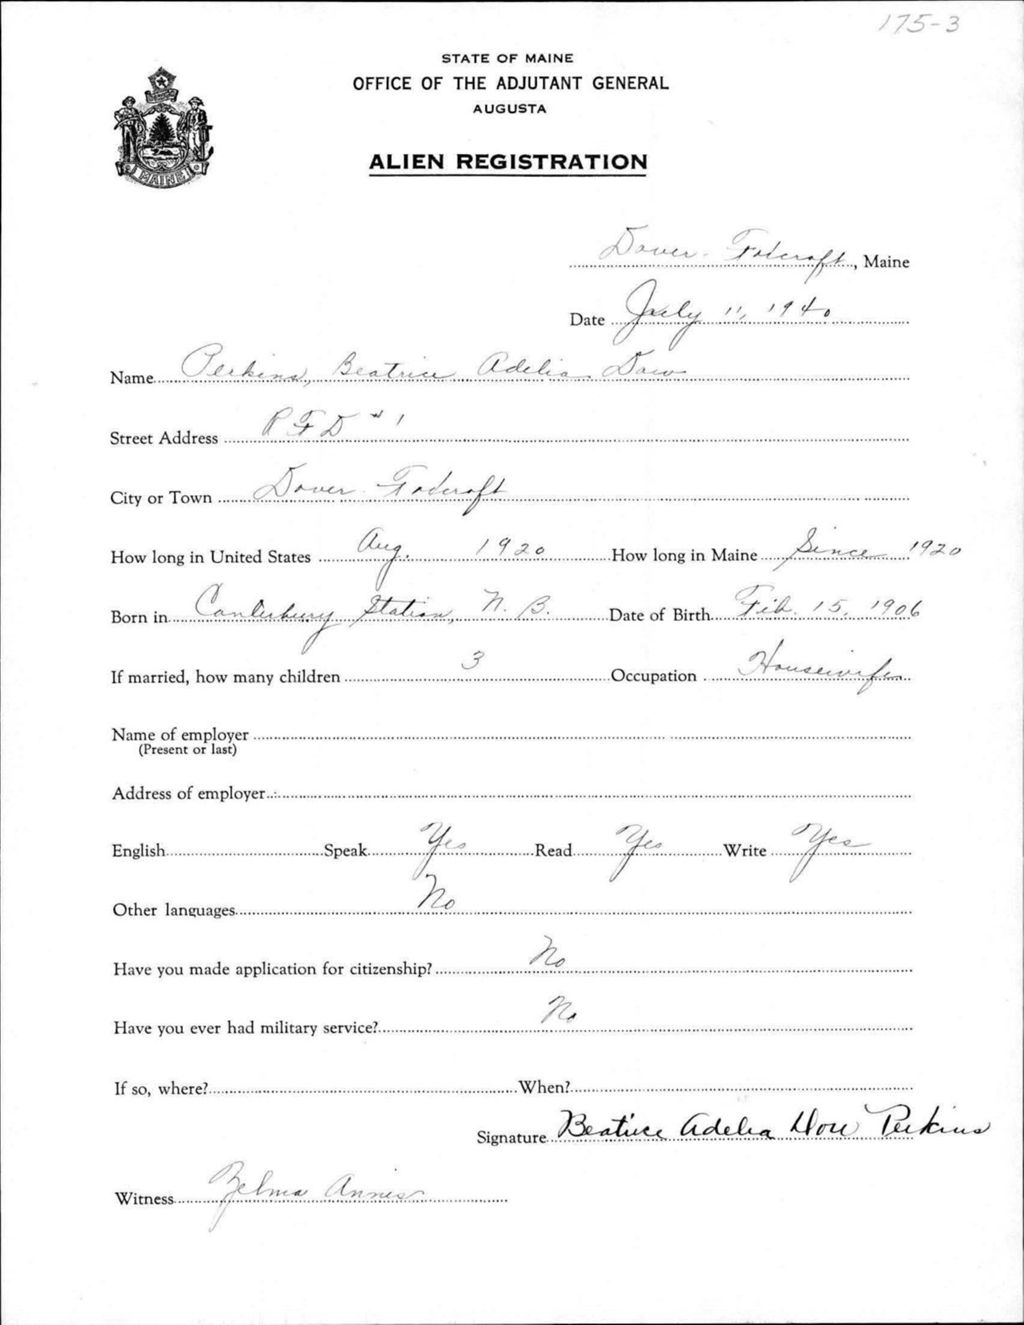 175-3
STATE OF MAINE
OFFICE OF THE ADJUTANT GENERAL
AUGUSTA
ALIEN REGISTRATION
MAINE
Dover-Foxcroft, Maine
Date July 11, 1940
Name Perkins, Beatrice Adelia Dow
Street Address R F D # 1
City or Town Dover-Foxcroft
How long in United States Aug. 1920 How long in Maine Since 1920
Born in Canterbury Station, N. B. Date of Birth Feb. 15, 1906
If married, how many children 3 Occupation Housewife
Name of employer
(Present or last)
Address of employer
English Speak Yes Read Yes Write Yes
Other languages No
Have you made application for citizenship? No
Have you ever had military service? No
If so, where? When?
Signature Beatrice Adelia Dow Perkins
Witness Zelma Annis